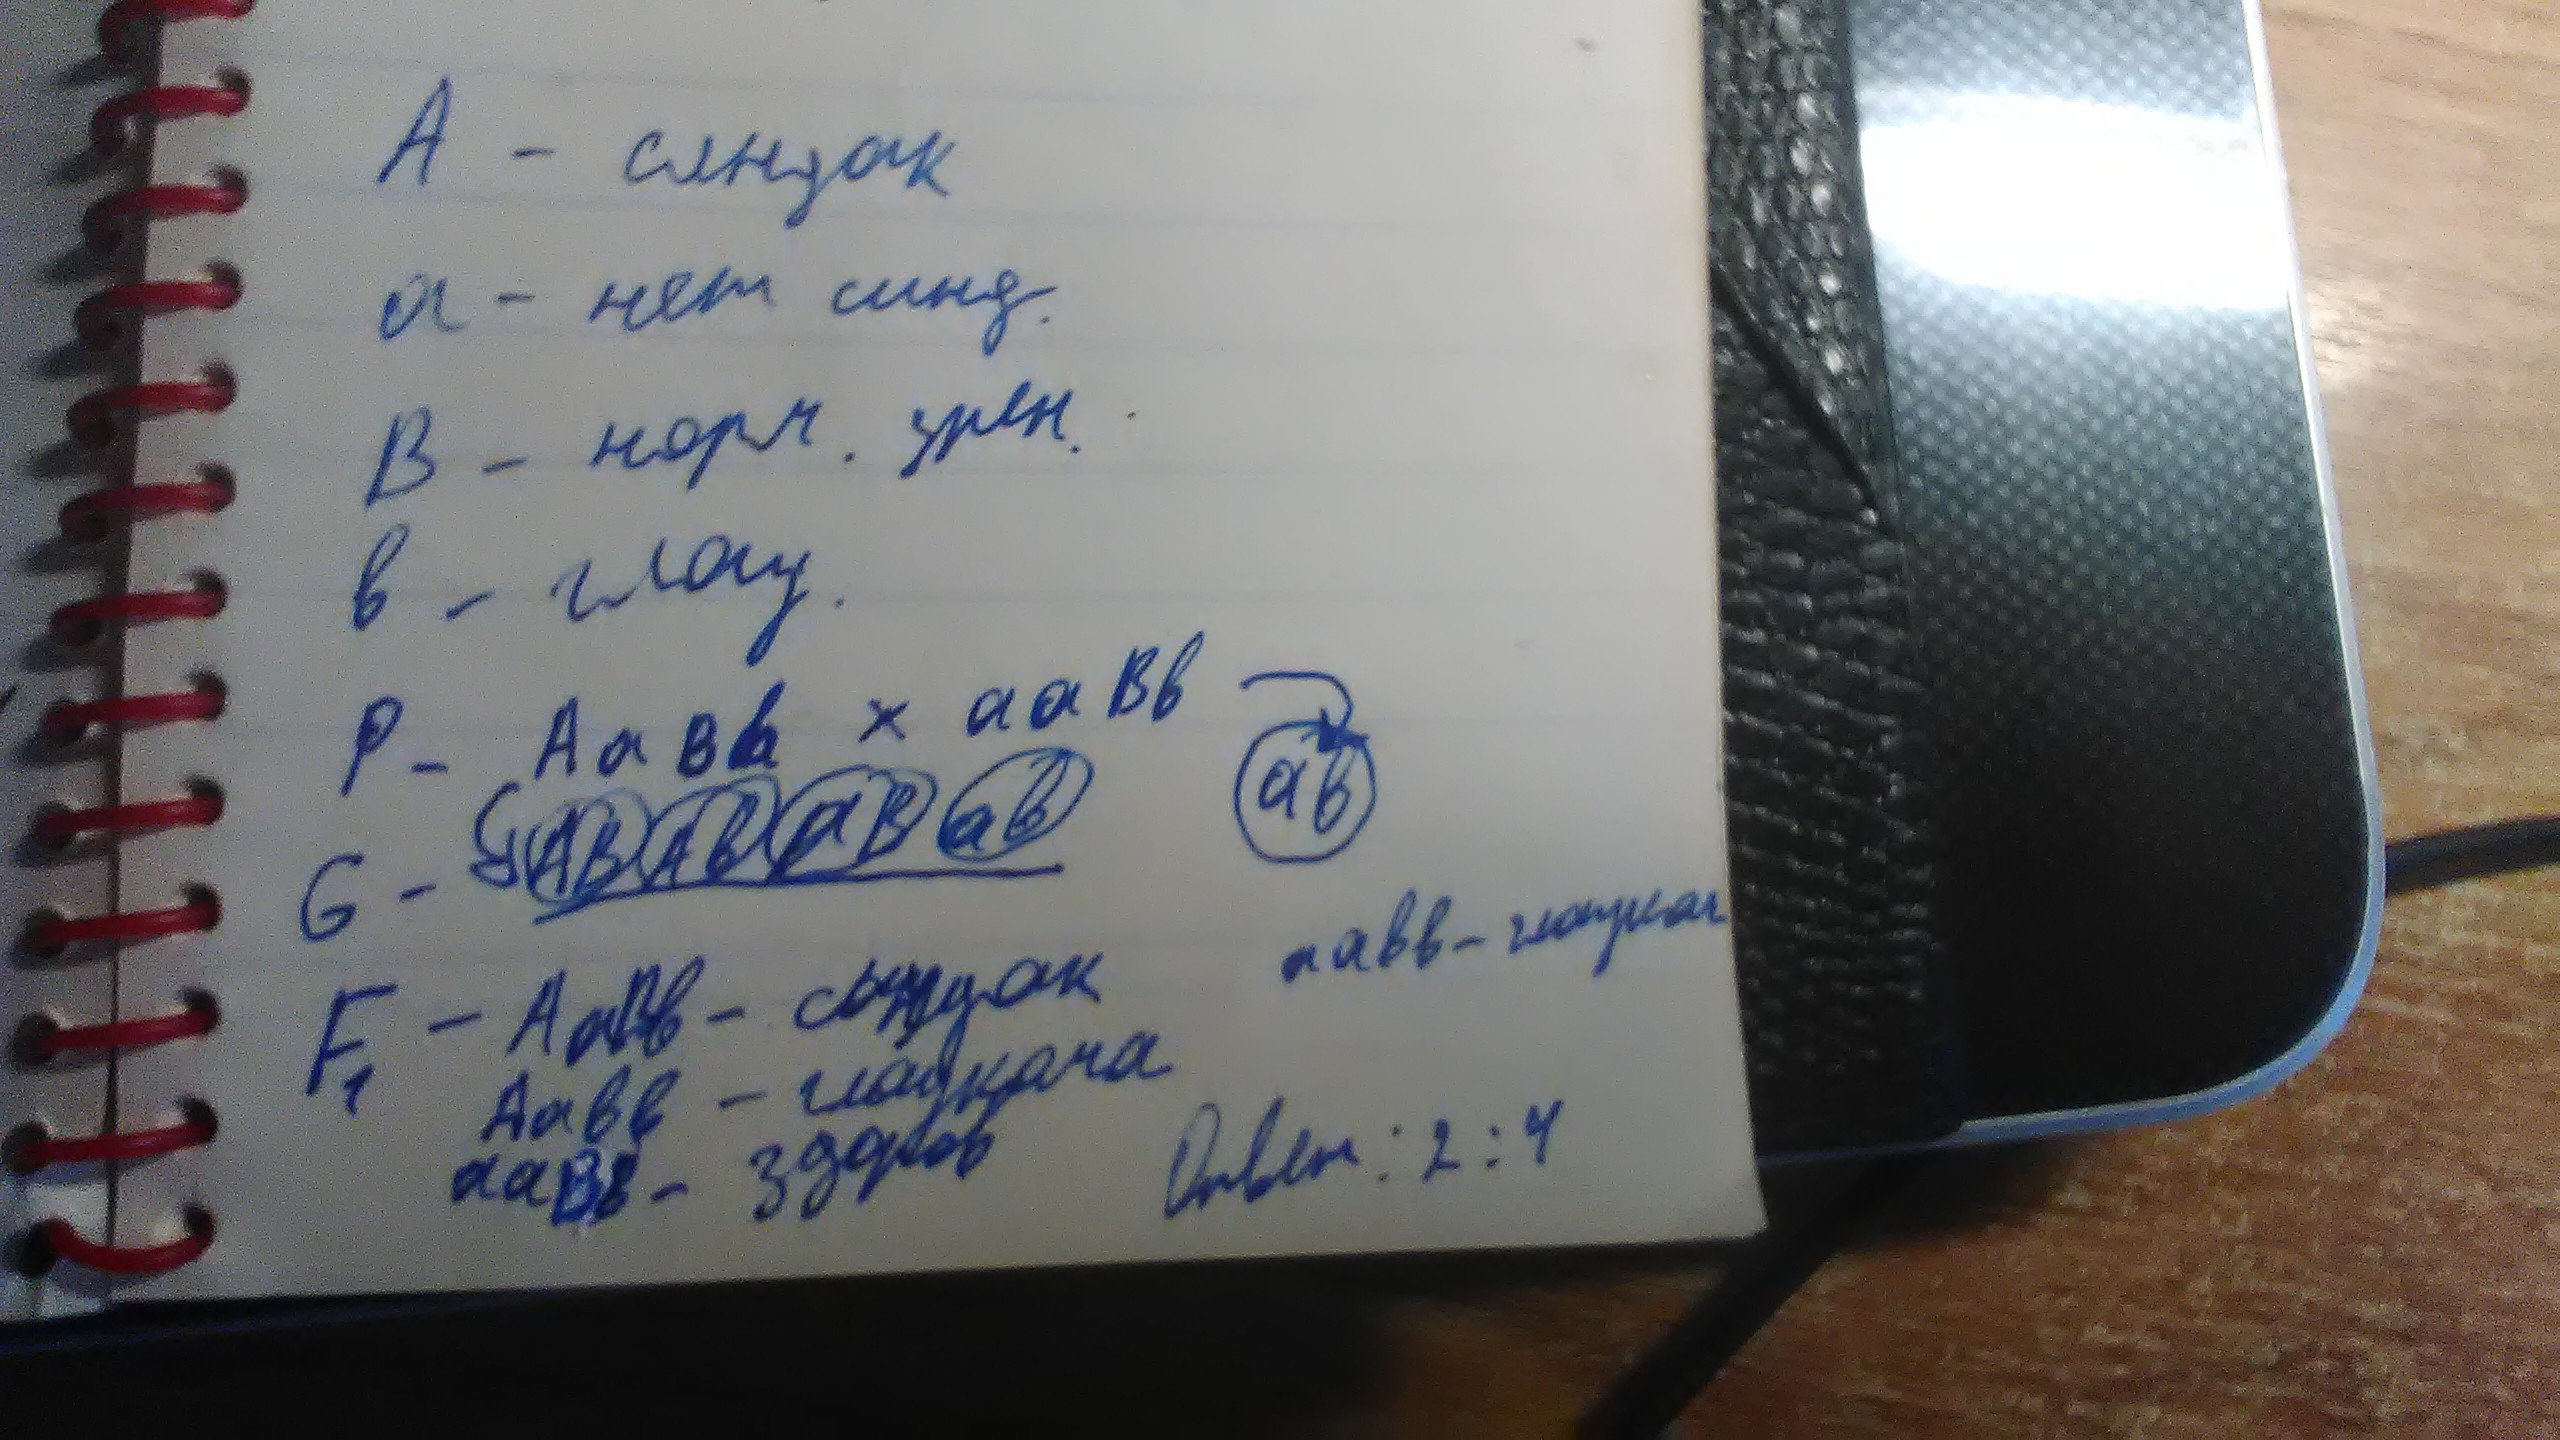 А - синдак
а - нет синд.
В - норм. зрен.
в - глау.
Р - АаВв х ааВв
G - АВ Ав аВ ав ав
аавв - глауком
F1 - АаВв - синдак
Аавв - глаукома
ааВв - здоров
Ответ: 2:4